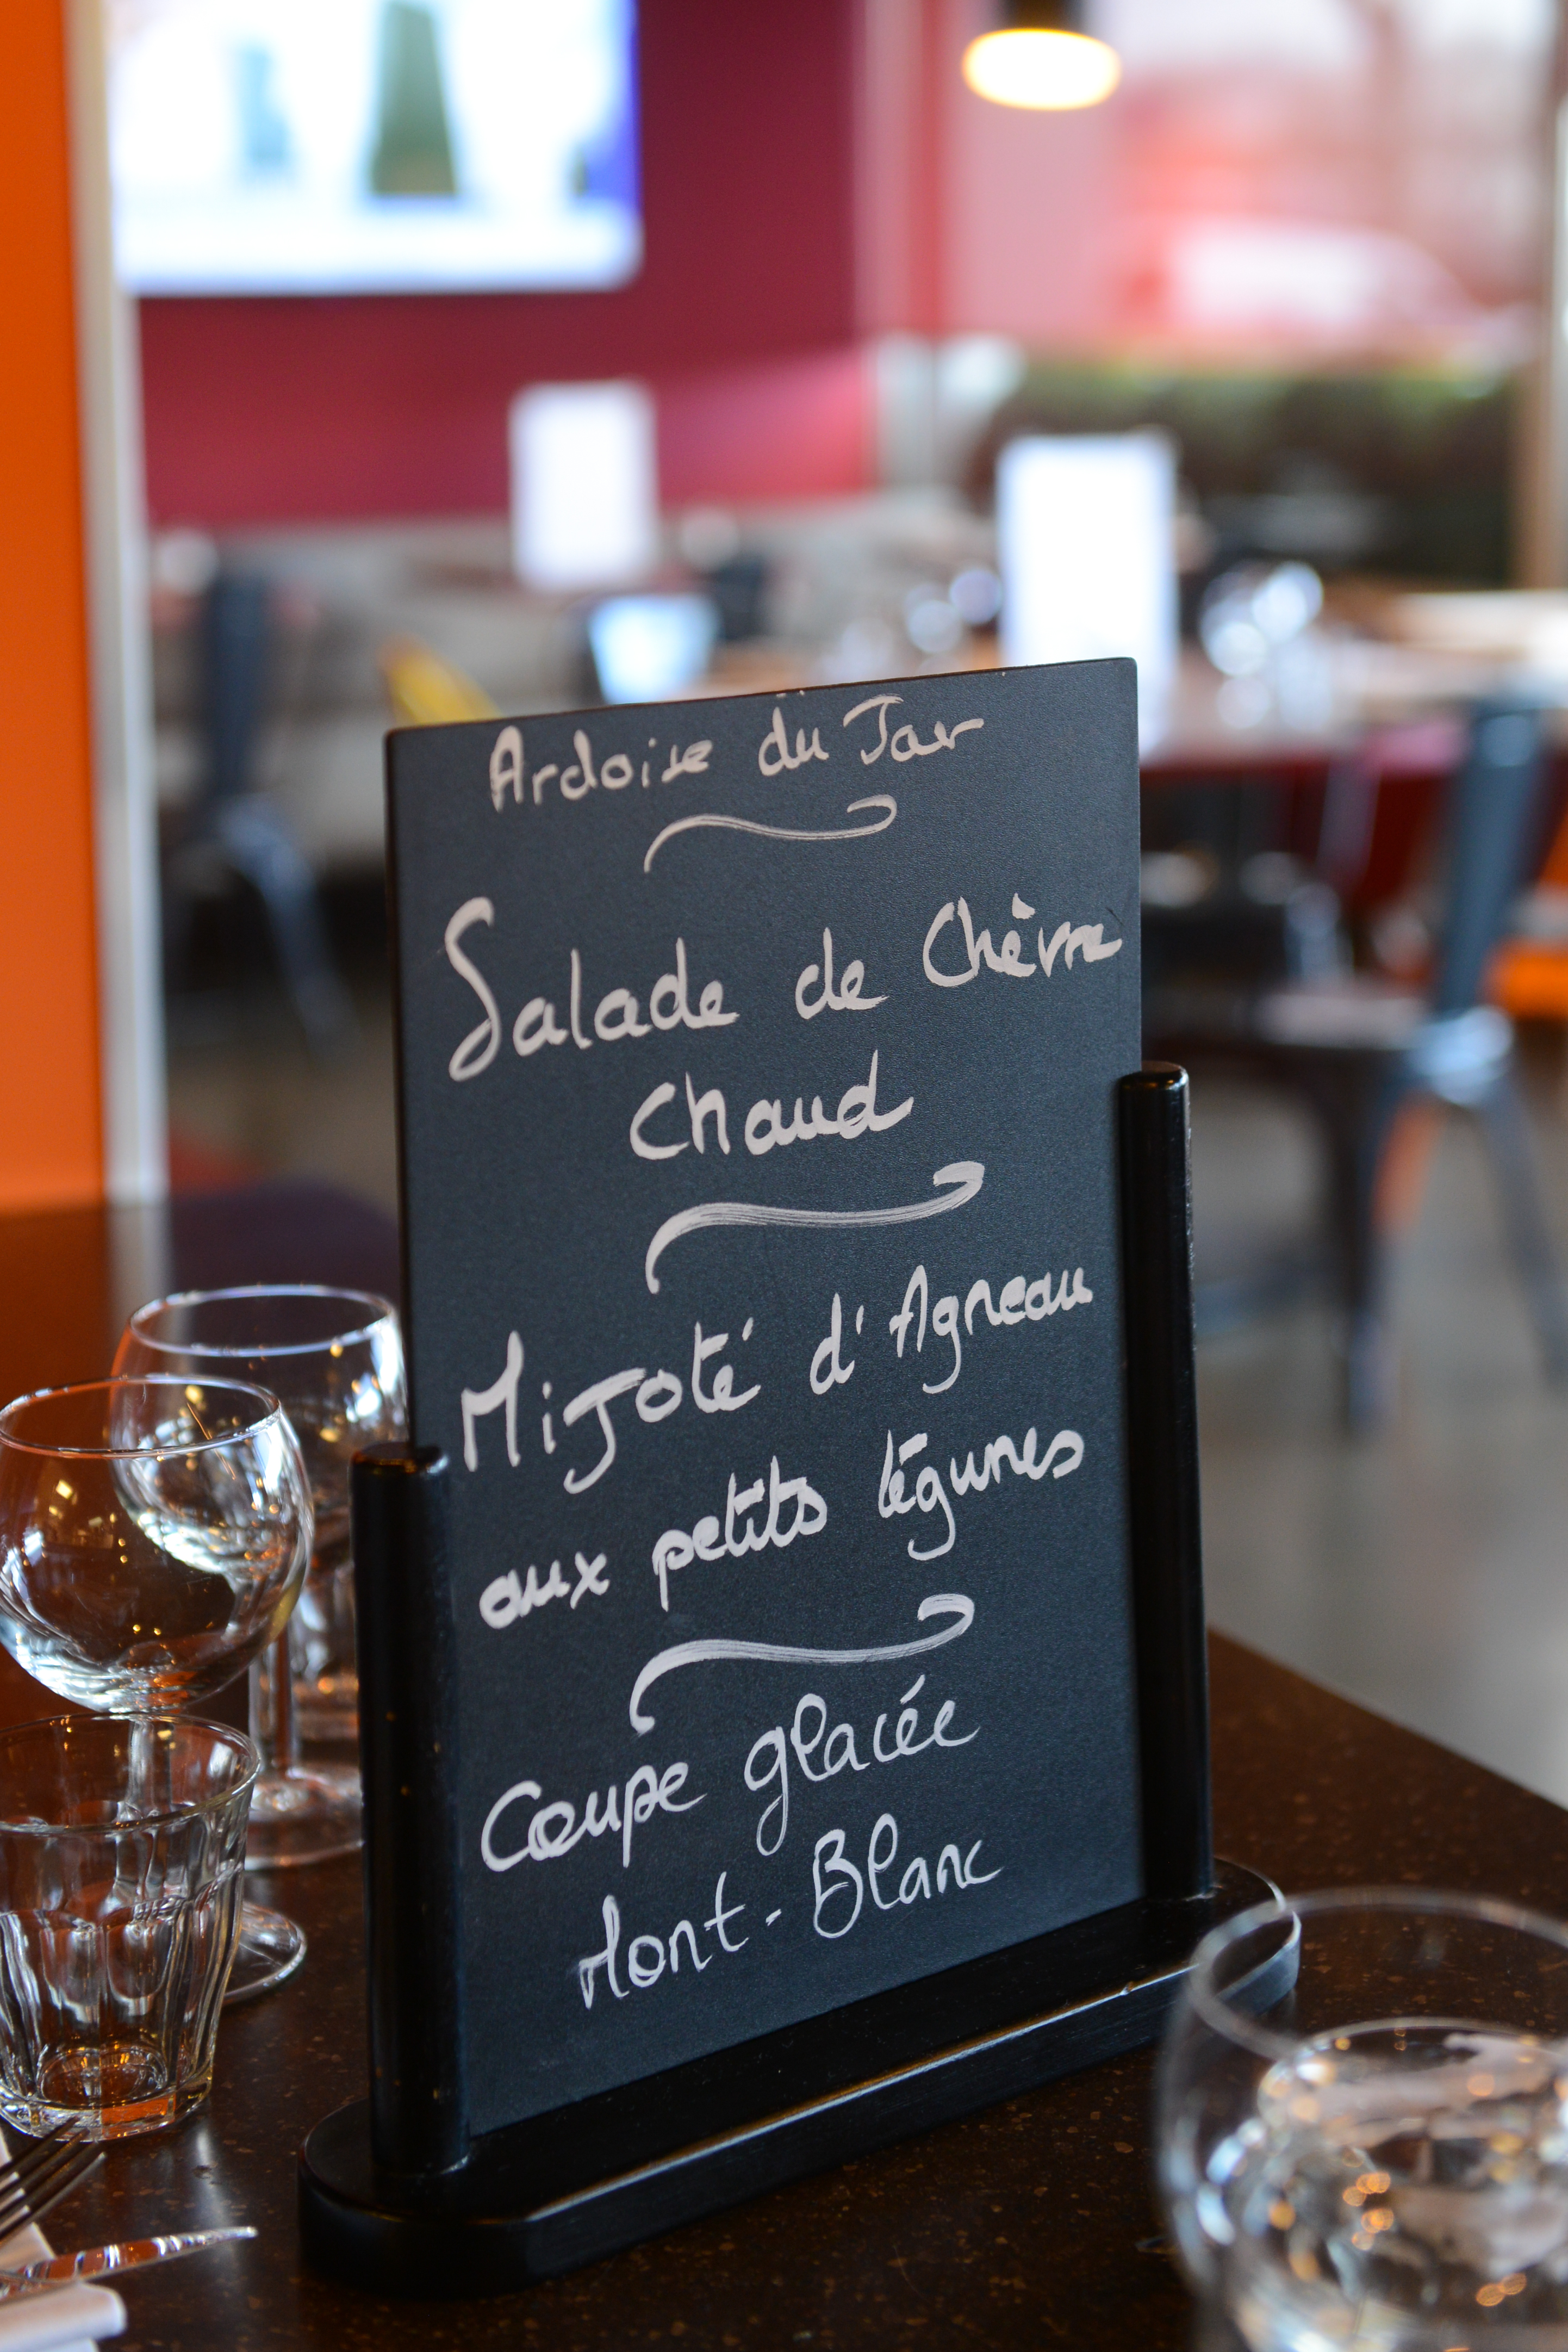 Ardoise du Jar
Salade de Chèvre
Chaud
Mijoté d'Agneau
aux petits légumes
Coupe glacée
Mont-Blanc